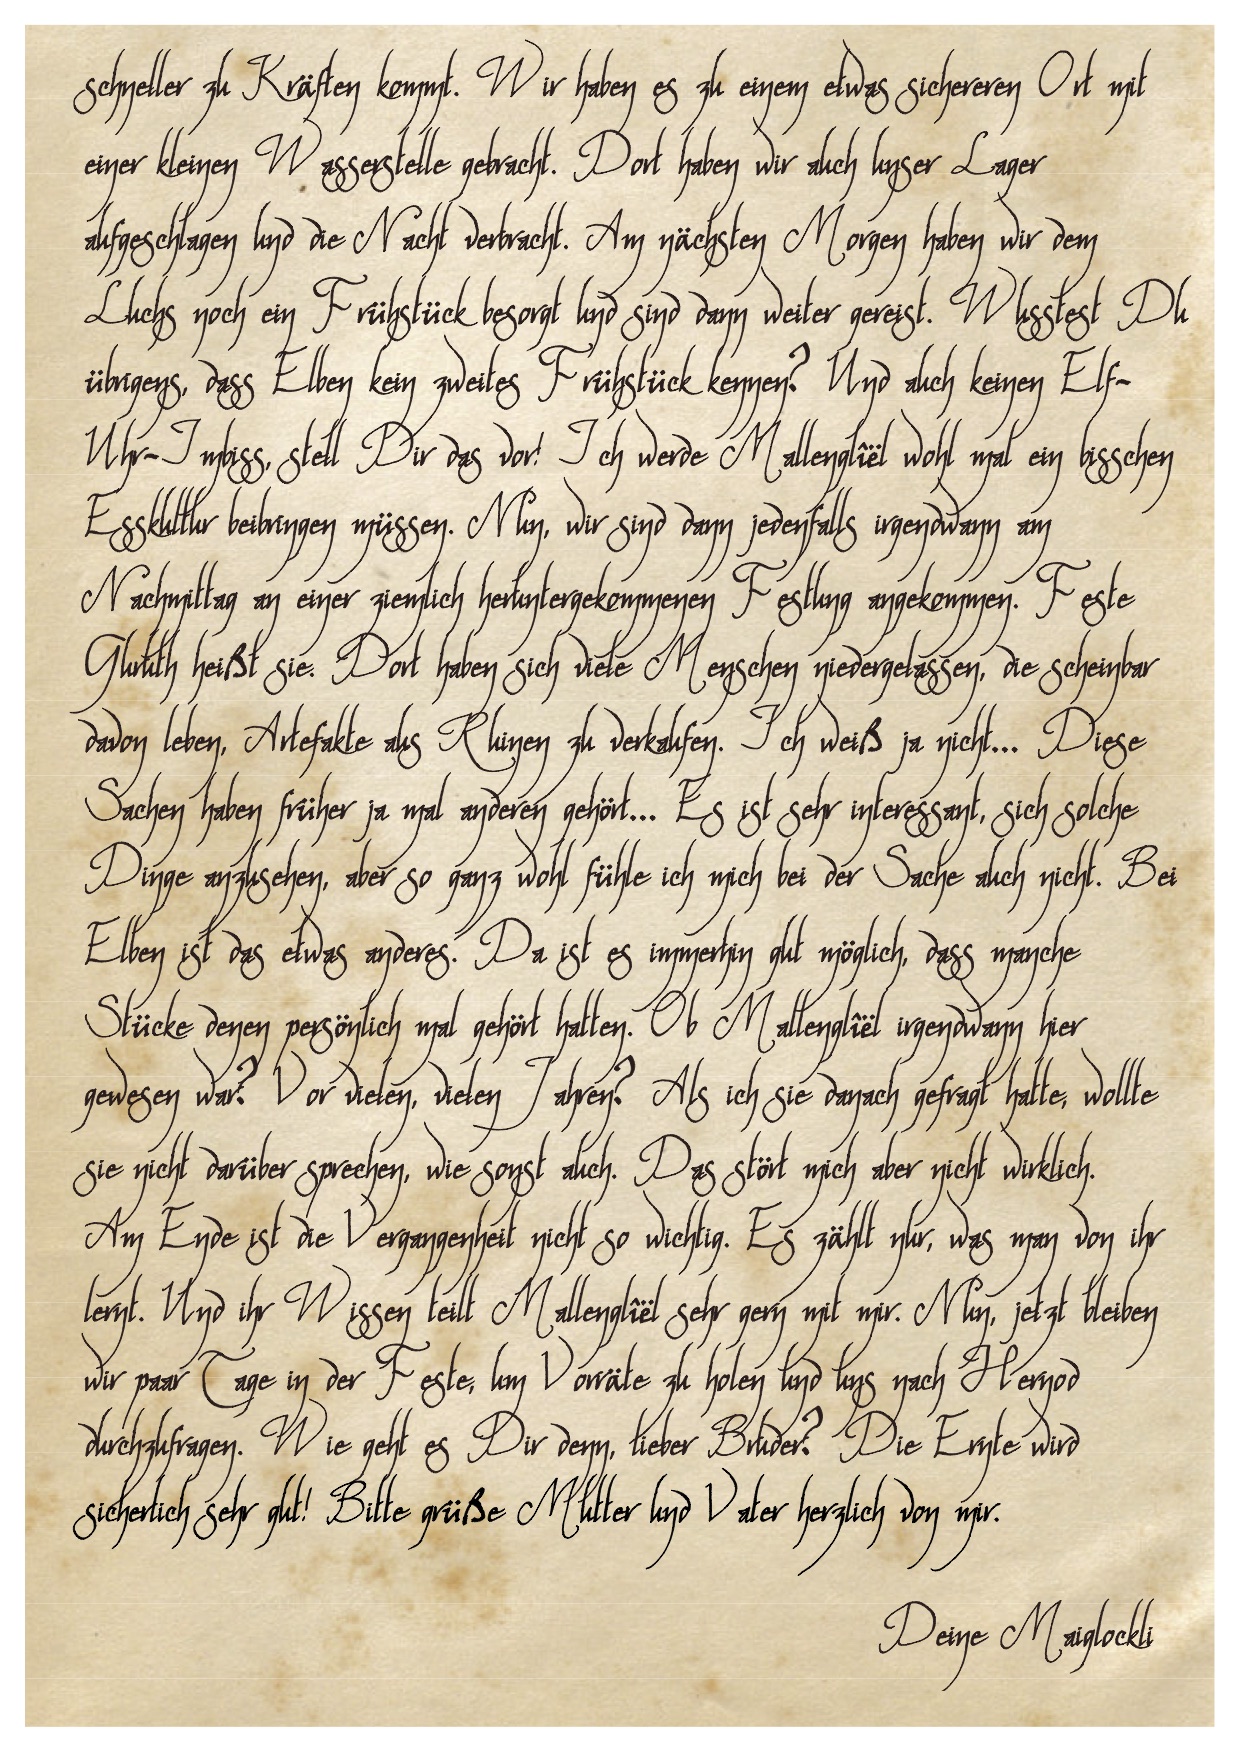 schneller zu Kräften kommt. Wir haben es zu einem etwas sichereren Ort mit
einer kleinen Wasserstelle gebracht. Dort haben wir auch unser Lager
aufgeschlagen und die Nacht verbracht. Am nächsten Morgen haben wir dem
Luchs noch ein Frühstück besorgt und sind dann weiter gereist. Wusstest Du
übrigens, dass Elben kein zweites Frühstück kennen? Und auch keinen Elf-
Uhr-Imbiss, stell Dir das vor! Ich werde Mallenglîël wohl mal ein bisschen
Esskultur beibringen müssen. Nun, wir sind dann jedenfalls irgendwann am
Nachmittag an einer ziemlich heruntergekommenen Festung angekommen. Feste
Guruth heißt sie. Dort haben sich viele Menschen niedergelassen, die scheinbar
davon leben, Artefakte aus Ruinen zu verkaufen. Ich weiß ja nicht... Diese
Sachen haben früher ja mal anderen gehört... Es ist sehr interessant, sich solche
Dinge anzusehen, aber so ganz wohl fühle ich mich bei der Sache auch nicht. Bei
Elben ist das etwas anderes. Da ist es immerhin gut möglich, dass manche
Stücke denen persönlich mal gehört hatten. Ob Mallenglîël irgendwann hier
gewesen war? Vor vielen, vielen Jahren? Als ich sie danach gefragt hatte, wollte
sie nicht darüber sprechen, wie sonst auch. Das stört mich aber nicht wirklich.
Am Ende ist die Vergangenheit nicht so wichtig. Es zählt nur, was man von ihr
lernt. Und ihr Wissen teilt Mallenglîël sehr gern mit mir. Nun, jetzt bleiben
wir paar Tage in der Feste, um Vorräte zu holen und uns nach Hernod
durchzufragen. Wie geht es Dir denn, lieber Bruder? Die Ernte wird
sicherlich sehr gut! Bitte grüße Mutter und Vater herzlich von mir.
Deine Maiglockli